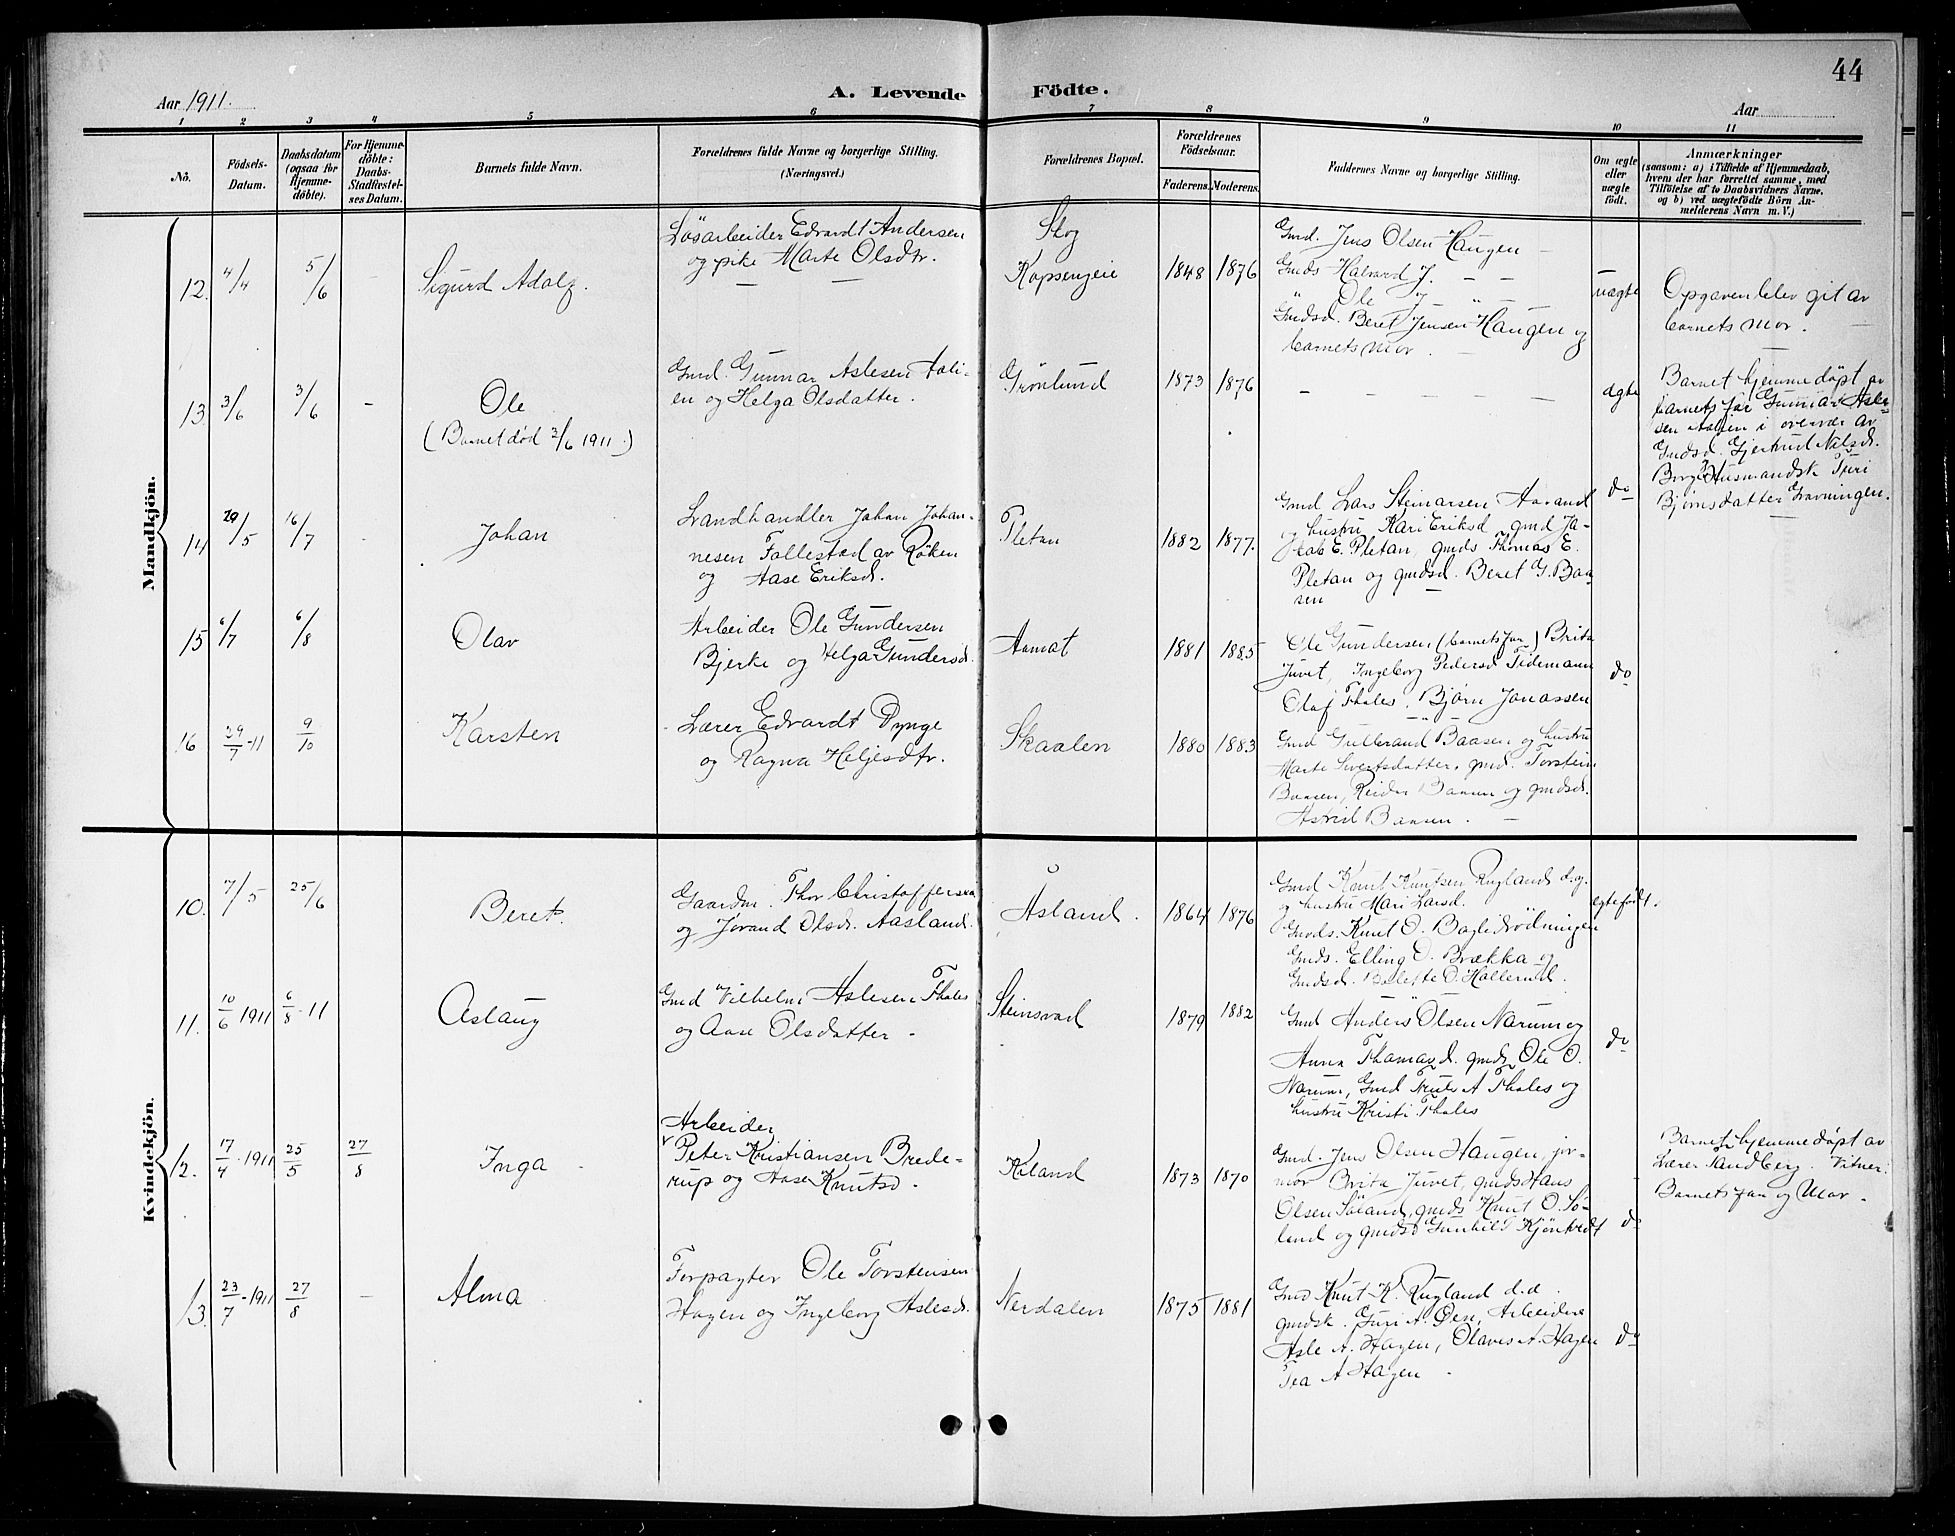 44
Aar 1911.
A. Levende Födte.
Aar
1 2 3 4 5 6 7 8 9 10 11
No.
Födsels-Datum.
Daabsdatum (ogsaa for Hjemmedöbte).
For Hjemmedöbte: Daabs-Stadfæstelses Datum.
Barnets fulde Navn.
Forældrenes fulde Navne og borgerlige Stilling.
(Næringsvei.)
Forældrenes Bopæl.
Forældrenes Födselsaar.
Faderens. Moderens.
Faddernes Navne og borgerlige Stilling.
Om ægte eller uægte födt.
Anmærkninger
(saasom: a) i Tilfælde af Hjemmedaab,
hvem der har forrettet samme, med
Tilföielse af to Daabsvidners Navne,
og b) ved uægtefödte Börn An-
melderens Navn m. V.)
Mandkjön.
12. 4/4 5/6 -
Sigurd Adolf.
Løsarbeider Edvardt Andersen
og pike Marte Olsdtr.
Kopsengeie
1848 1876
Gmd. Jens Olsen Haugen -
Gmds Halvard J. - -
Ole J - " -
Gmdsd. Beret Jensen Haugen og
barnets mor.
uægte
Opgaven blev git av
barnets mor.
13 3/6 3/6 -
Ole
(Barnet død 3/6 1911.)
Gmd. Gunnar Aslesen Aali-
en og Helga Olsdatter.
Grønlund
1873 1876
- - - - -
ægte
Barnet hjemmedøpt av
barnets far Gunnar Asle-
sen Aalien i overvær av
Gmdsd. Gjertrud Nilsd.
Borge, Husmandsk Turi
Bjørnsdatter Gravningen.
14 29/5 16/7 -
Johan
Landhandler Johan Johan-
nesen Follestad av Røken
og Aase Eriksd.
Pletan
1882 1877.
Gmd Lars Steinarsen Aavand
og hustru Kari Eriksd, gmd Ja-
kob E. Pletan, gmds Thomas E.
Pletan og gmdsd. Beret G. Baa-
sen
do
15 6/7 6/8
Olav
Arbeider Ole Gundersen
Bjerke og Helga Gundersd.
Aamot
1881 1885
Ole Gundersen (barnets far) Brita
Juvet, Ingeborg Pedersd Tidemann
Olaf Thales. Bjørn Jonassen
do
16 29/7-11 9/10
Karsten
Lærer Edvardt Dynge
og Ragna Heljesdtr.
Skaalen
1880 1883
Gmd Gulbrand Baasen og hustru
Marte Sivertsdatter, gmd. Torstein
Baasen, Reidar Baasen og gmdsd.
Astrid Baasen. -
Kvindekjön.
10. 7/5 25/6
Beret.
Gaardm. Thor Christoffersen
og Jørand Olsd. Aasland.
Åsland.
1864 1876
Gmd Knut Knutsen Rugland d.y.
og hustru Mari Larsd.
Gmds. Knut O. Bagli
Gmds. Elling O. Brækka og
Gmdsd. Bolette O. Hallerud.
egtefødt.
11. 10/6 1911 6/8-11
Aslaug
Gmd Vilhelm Aslesen Thales
og Aase Olsdatter -
Steinsvad
1879 1882
Gmd Anders Olsen Narum og
Anna Thomasd. gmds Ole O.
Narum, Gmd Knut A Thales og
hustru Kristi Thales
do
12. 17/4 1911 25/5 27/8
Inga
Arbeider
Peter Kristiansen Brede-
rup og Aase Knutsd.
Køland
1873 1870
Gmd. Jens Olsen Haugen, jor-
mor Brita Juvet, gmds Hans
Olsen Søland, gmds Knut O. Sö-
land og gmdsd Gunhild Kjønhvedt
do
Barnet hjemmedøpt av
Lærer Sandberg. Vitner:
Barnets far og Mor.
13. 23/7-1911 27/8 -
Alma
Forpagter Ole Torstensen
Hagen og Ingeborg Aslesd.
Nerdalen
1875 1881
Gmd Knut K. Rugland d.d.
gmdsk. Guri A. Øen, Arbeidere
Asle A. Hagen, Olaves A. Hagen
Tea A Hagen
do